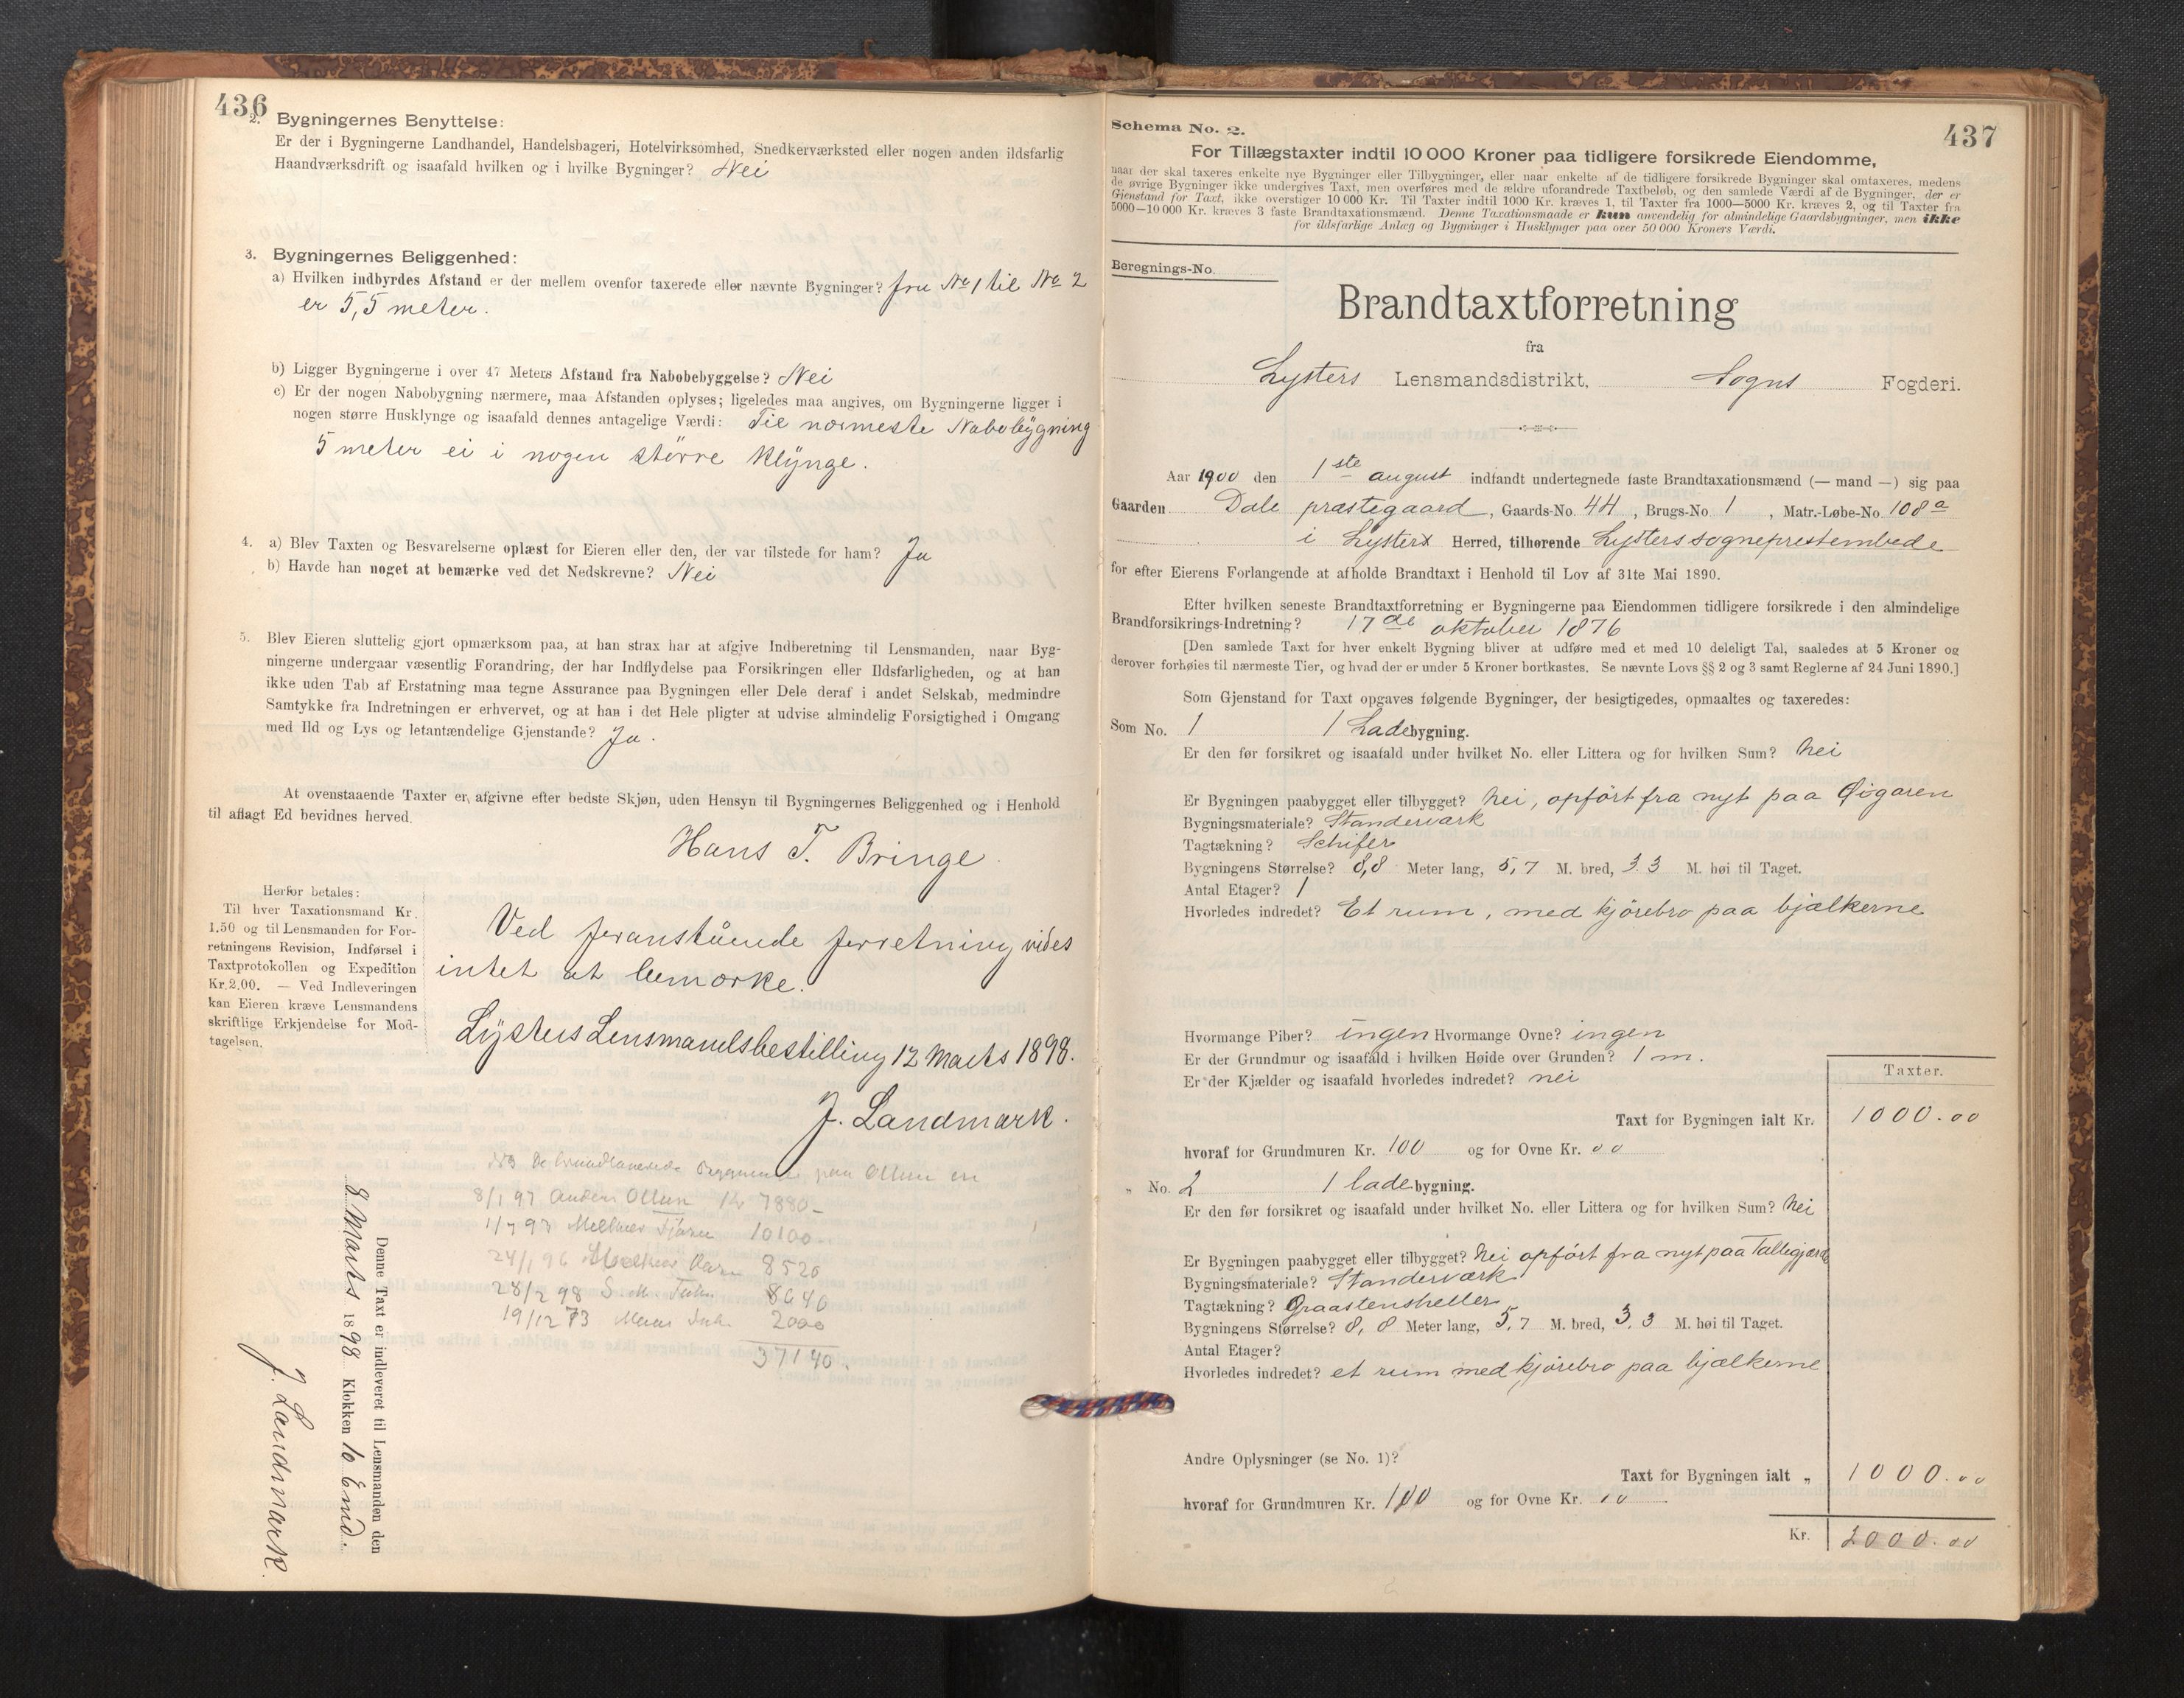 436
2. Bygningernes Benyttelse:
Er der i Bygningerne Landhandel, Handelsbageri, Hotelvirksomhed, Snedkerværksted eller nogen anden ildsfarlig
Haandværksdrift og isaafald hvilken og i hvilke Bygninger? Nei
3. Bygningernes Beliggenhed:
a) Hvilken indbyrdes Afstand er der mellem ovenfor taxerede eller nævnte Bygninger? fra No 1 til No 2
er 5,5 meter.
b) Ligger Bygningerne i over 47 Meters Afstand fra Nabobebyggelse? Nei
c) Er der nogen Nabobygning nærmere, maa Afstanden oplyses; ligeledes maa angives, om Bygningerne ligger i
nogen større Husklynge og isaafald dennes antagelige Værdi: Til nærmeste Nabobygning
5 meter ei i nogen större Klynge.
4. a) Blev Taxten og Besvarelserne oplæst for Eieren eller den, der var tilstede for ham? Ja
b) Havde han noget at bemærke ved det Nedskrevne? Nei
5. Blev Eieren sluttelig gjort opmærksom paa, at han strax har at afgive Indberetning til Lensmanden, naar Byg-
ningerne undergaar væsentlig Forandring, der har Indflydelse paa Forsikringen eller Ildsfarligheden, og at han
ikke uden Tab af Erstatning maa tegne Assurance paa Bygningen eller Dele deraf i andet Selskab, medmindre
Samtykke fra Indretningen er erhvervet, og at han i det Hele pligter at udvise almindelig Forsigtighed i Omgang
med Ild og Lys og letantændelige Gjenstande? Ja.
At ovenstaaende Taxter er afgivne efter bedste Skjøn, uden Hensyn til Bygningernes Beliggenhed og i Henhold
til aflagt Ed bevidnes herved.
Hans T. Bringe.
Herfor betales:
Til hver Taxationsmand Kr.
1.50 og til Lensmanden for For-
retningens Revision, Indførsel i
Taxtprotokollen og Expedition
Kr. 2.00. — Ved Indleveringen
kan Eieren kræve Lensmandens
skriftlige Erkjendelse for Mod-
tagelsen.
Ved foranstående forretning vides
intet at bemærke.
Lysters Lensmandsbestilling 12 Marts 1898.
J. Landmark.
paa Ollum en
8/1 97 Anders Ollum 7880 -
1/7 97 10100 -
24/1 96 8520
28/2 98 S. M. 8640
19/12 73 2000
37140.
Denne Taxt er indleveret til Lensmanden den
8 Marts 1898 Klokken 10 Emd.
J. Landmark.
437
Schema No. 2.
For Tillægstaxter indtil 10 000 Kroner paa tidligere forsikrede Eiendomme,
naar der skal taxeres enkelte nye Bygninger eller Tilbygninger, eller naar enkelte af de tidligere forsikrede Bygninger skal omtaxeres, medens
de øvrige Bygninger ikke undergives Taxt, men overføres med de ældre uforandrede Taxtbeløb, og den samlede Værdi af de Bygninger, der er
Gjenstand for Taxt, ikke overstiger 10 000 Kr. Til Taxter indtil 1000 Kr. kræves 1, til Taxter fra 1000—5000 Kr. kræves 2, og til Taxter fra
5000—10 000 Kr. kræves 3 faste Brandtaxationsmænd. Denne Taxationsmaade er kun anvendelig for almindelige Gaardsbygninger, men ikke
for ildsfarlige Anlæg og Bygninger i Husklynger paa over 50 000 Kroners Værdi.
Beregnings-No.
Brandtaxtforretning
fra
Lysters Lensmandsdistrikt, Sogns Fogderi.
Aar 1900 den 1ste august indfandt undertegnede faste Brandtaxationsmænd (— mand —) sig paa
Gaarden Dale præstegaard, Gaards-No. 44, Brugs-No. 1, Matr.-Løbe-No. 108a
i Lyster Herred, tilhørende Lysters sogneprestembede
for efter Eierens Forlangende at afholde Brandtaxt i Henhold til Lov af 31te Mai 1890.
Efter hvilken seneste Brandtaxtforretning er Bygningerne paa Eiendommen tidligere forsikrede i den almindelige
Brandforsikrings-Indretning? 17de oktober 1876
[Den samlede Taxt for hver enkelt Bygning bliver at udføre med et med 10 deleligt Tal, saaledes at 5 Kroner og
derover forhøies til nærmeste Tier, og hvad der er under 5 Kroner bortkastes. Se nævnte Lovs §§ 2 og 3 samt Reglerne af 24 Juni 1890.]
Som Gjenstand for Taxt opgaves følgende Bygninger, der besigtigedes, opmaaltes og taxeredes:
Som No. 1 1 Ladebygning.
Er den før forsikret og isaafald under hvilket No. eller Littera og for hvilken Sum? Nei
Er Bygningen paabygget eller tilbygget? Nei, opført fra nyt paa Øigaren
Bygningsmateriale? Standerværk
Tagtækning? Schifer
Bygningens Størrelse? 8,8 Meter lang, 5,7 M. bred, 3.3 M. høi til Taget.
Antal Etager? 1
Hvorledes indredet? Et rum, med kjørebro paa bjælkerne
Hvormange Piber? ingen Hvormange Ovne? ingen
Er der Grundmur og isaafald i hvilken Høide over Grunden? 1 m.
Er der Kjælder og isaafald hvorledes indredet? nei
Taxter.
Taxt for Bygningen ialt Kr. 1000.00
hvoraf for Grundmuren Kr. 100 og for Ovne Kr. 00
„ No. 2 1 ladebygning.
Er den før forsikret og isaafald under hvilket No. eller Littera og for hvilken Sum? Nei
Er Bygningen paabygget eller tilbygget? Nei opført fra nyt paa
Bygningsmateriale? Standerværk
Tagtækning? Graastensheller
Bygningens Størrelse? 8,8 Meter lang, 5,7 M. bred, 3.3 M. høi til Taget.
Antal Etager?
Hvorledes indredet? et rum med kjørebro paa bjælkerne
Andre Oplysninger (se No. 1)?
Taxt for Bygningen ialt „ 1000.00
hvoraf for Grundmuren Kr. 100 og for Ovne Kr. 00
Kr. 2000.00